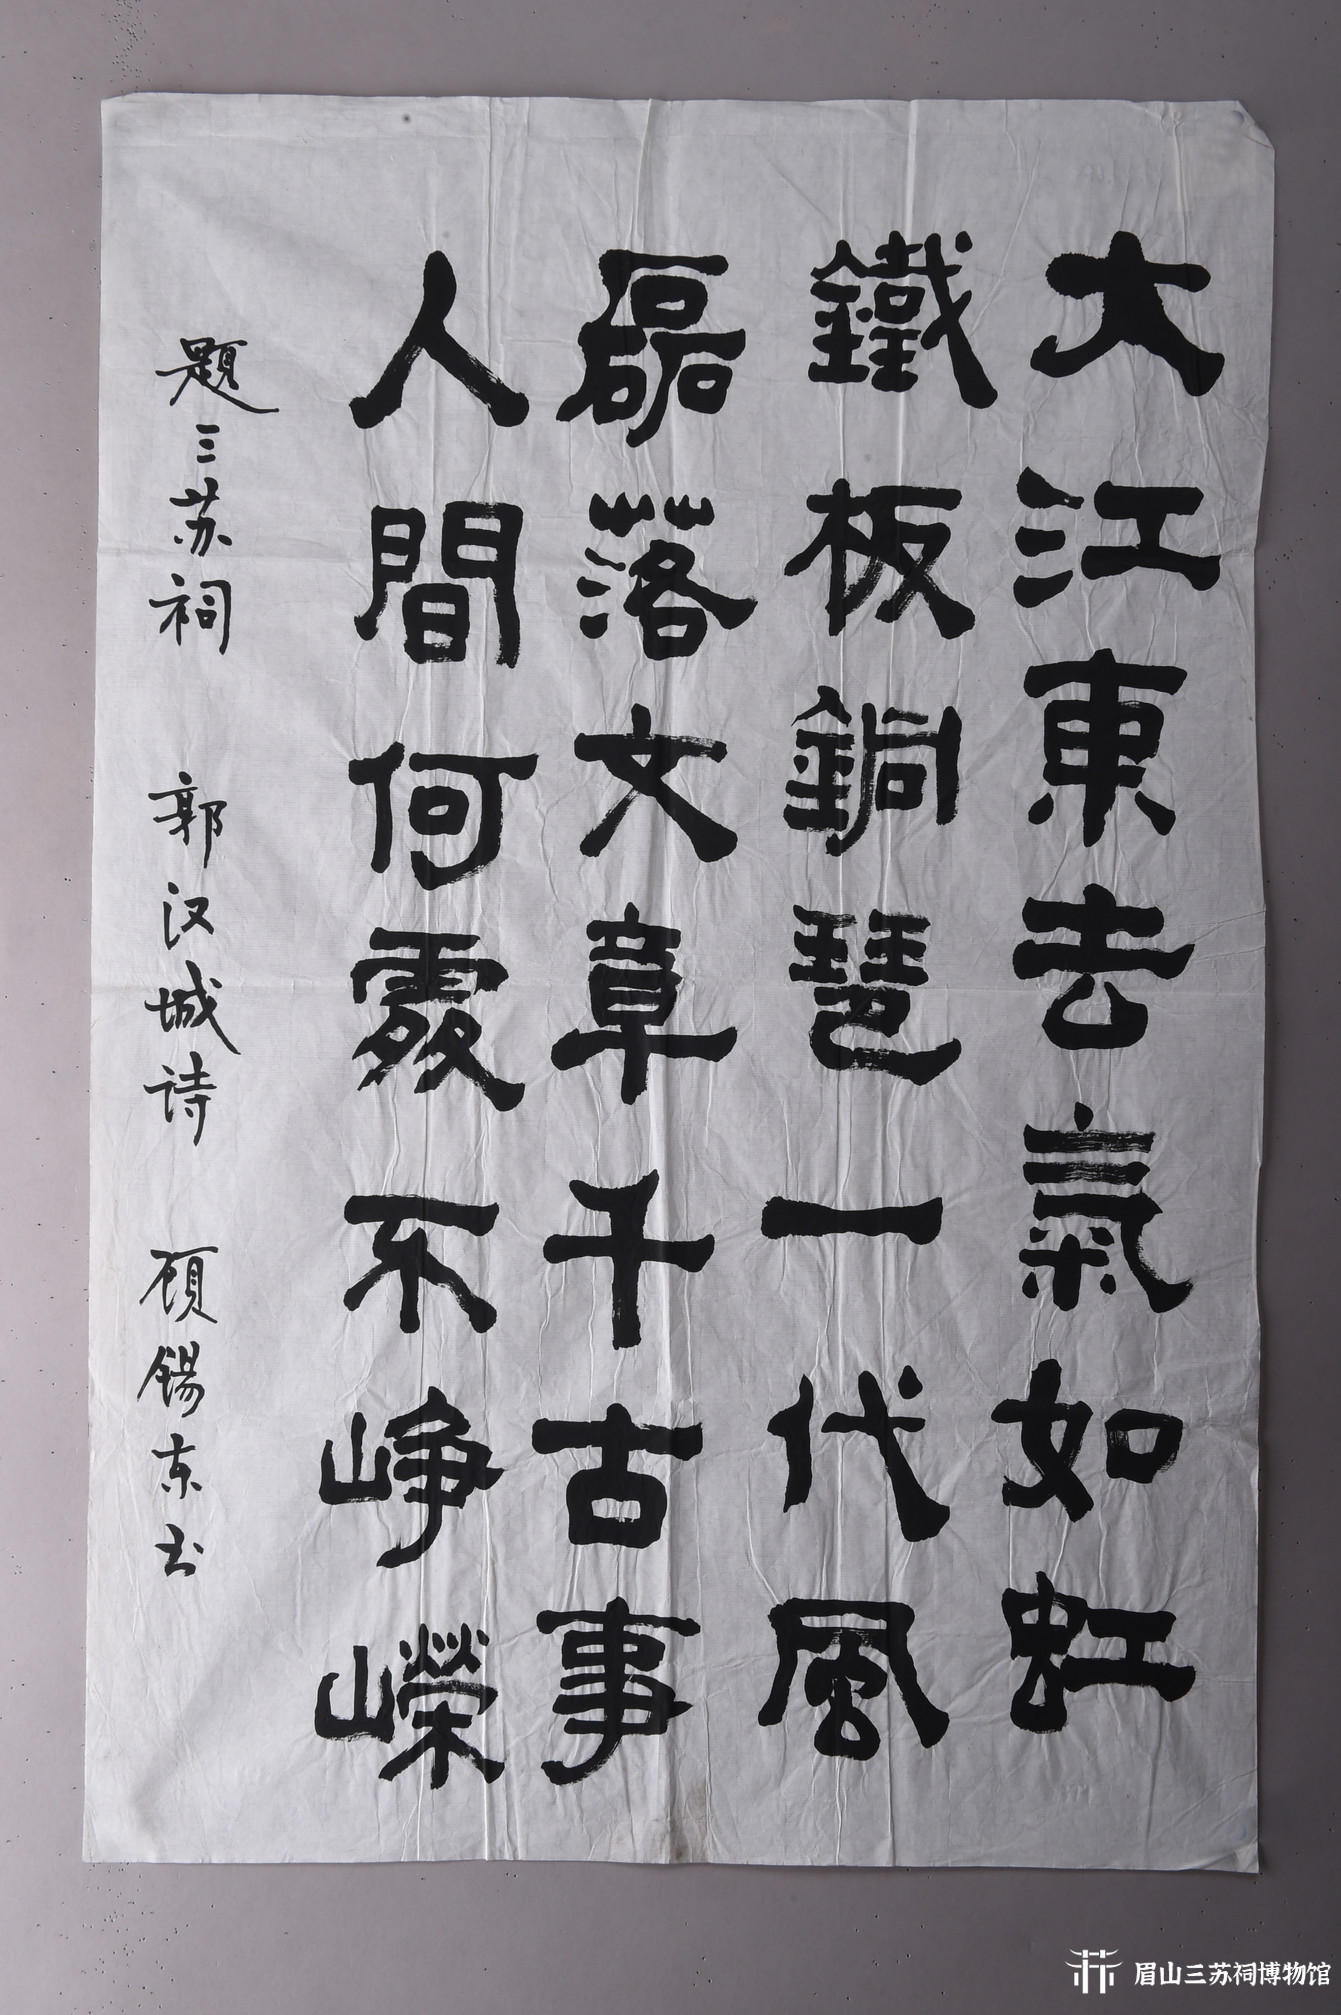 大江東去氣如虹
鐵板銅琶一代風
磊落文章千古事
人間何處不崢嶸
题三苏祠 郭汉城诗 顾锡东书
眉山三苏祠博物馆